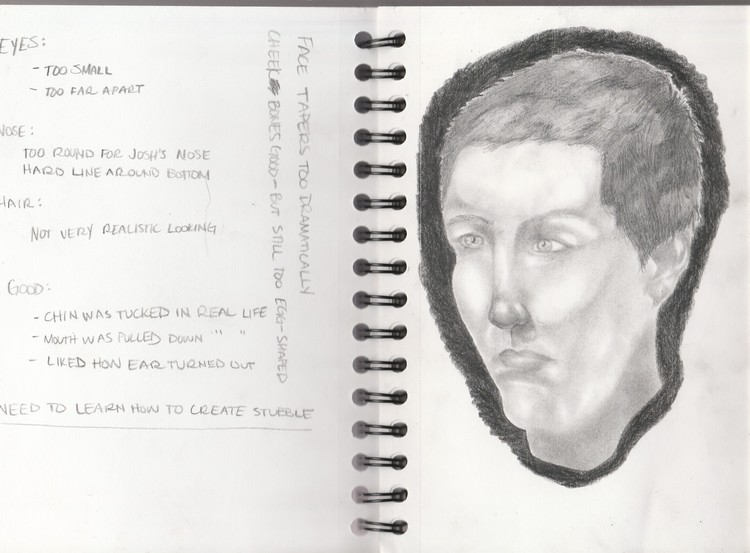 EYES:
- TOO SMALL
- TOO FAR APART
NOSE:
TOO ROUND FOR JOSH'S NOSE
HARD LINE AROUND BOTTOM
HAIR:
NOT VERY REALISTIC LOOKING
GOOD:
- CHIN WAS TUCKED IN REAL LIFE
- MOUTH WAS PULLED DOWN "" "
- LIKED HOW EAR TURNED OUT
NEED TO LEARN HOW TO CREATE STUBBLE
FACE TAPERS TOO DRAMATICALLY
CHEEK BONES GOOD - BUT STILL TOO EGG-SHAPED